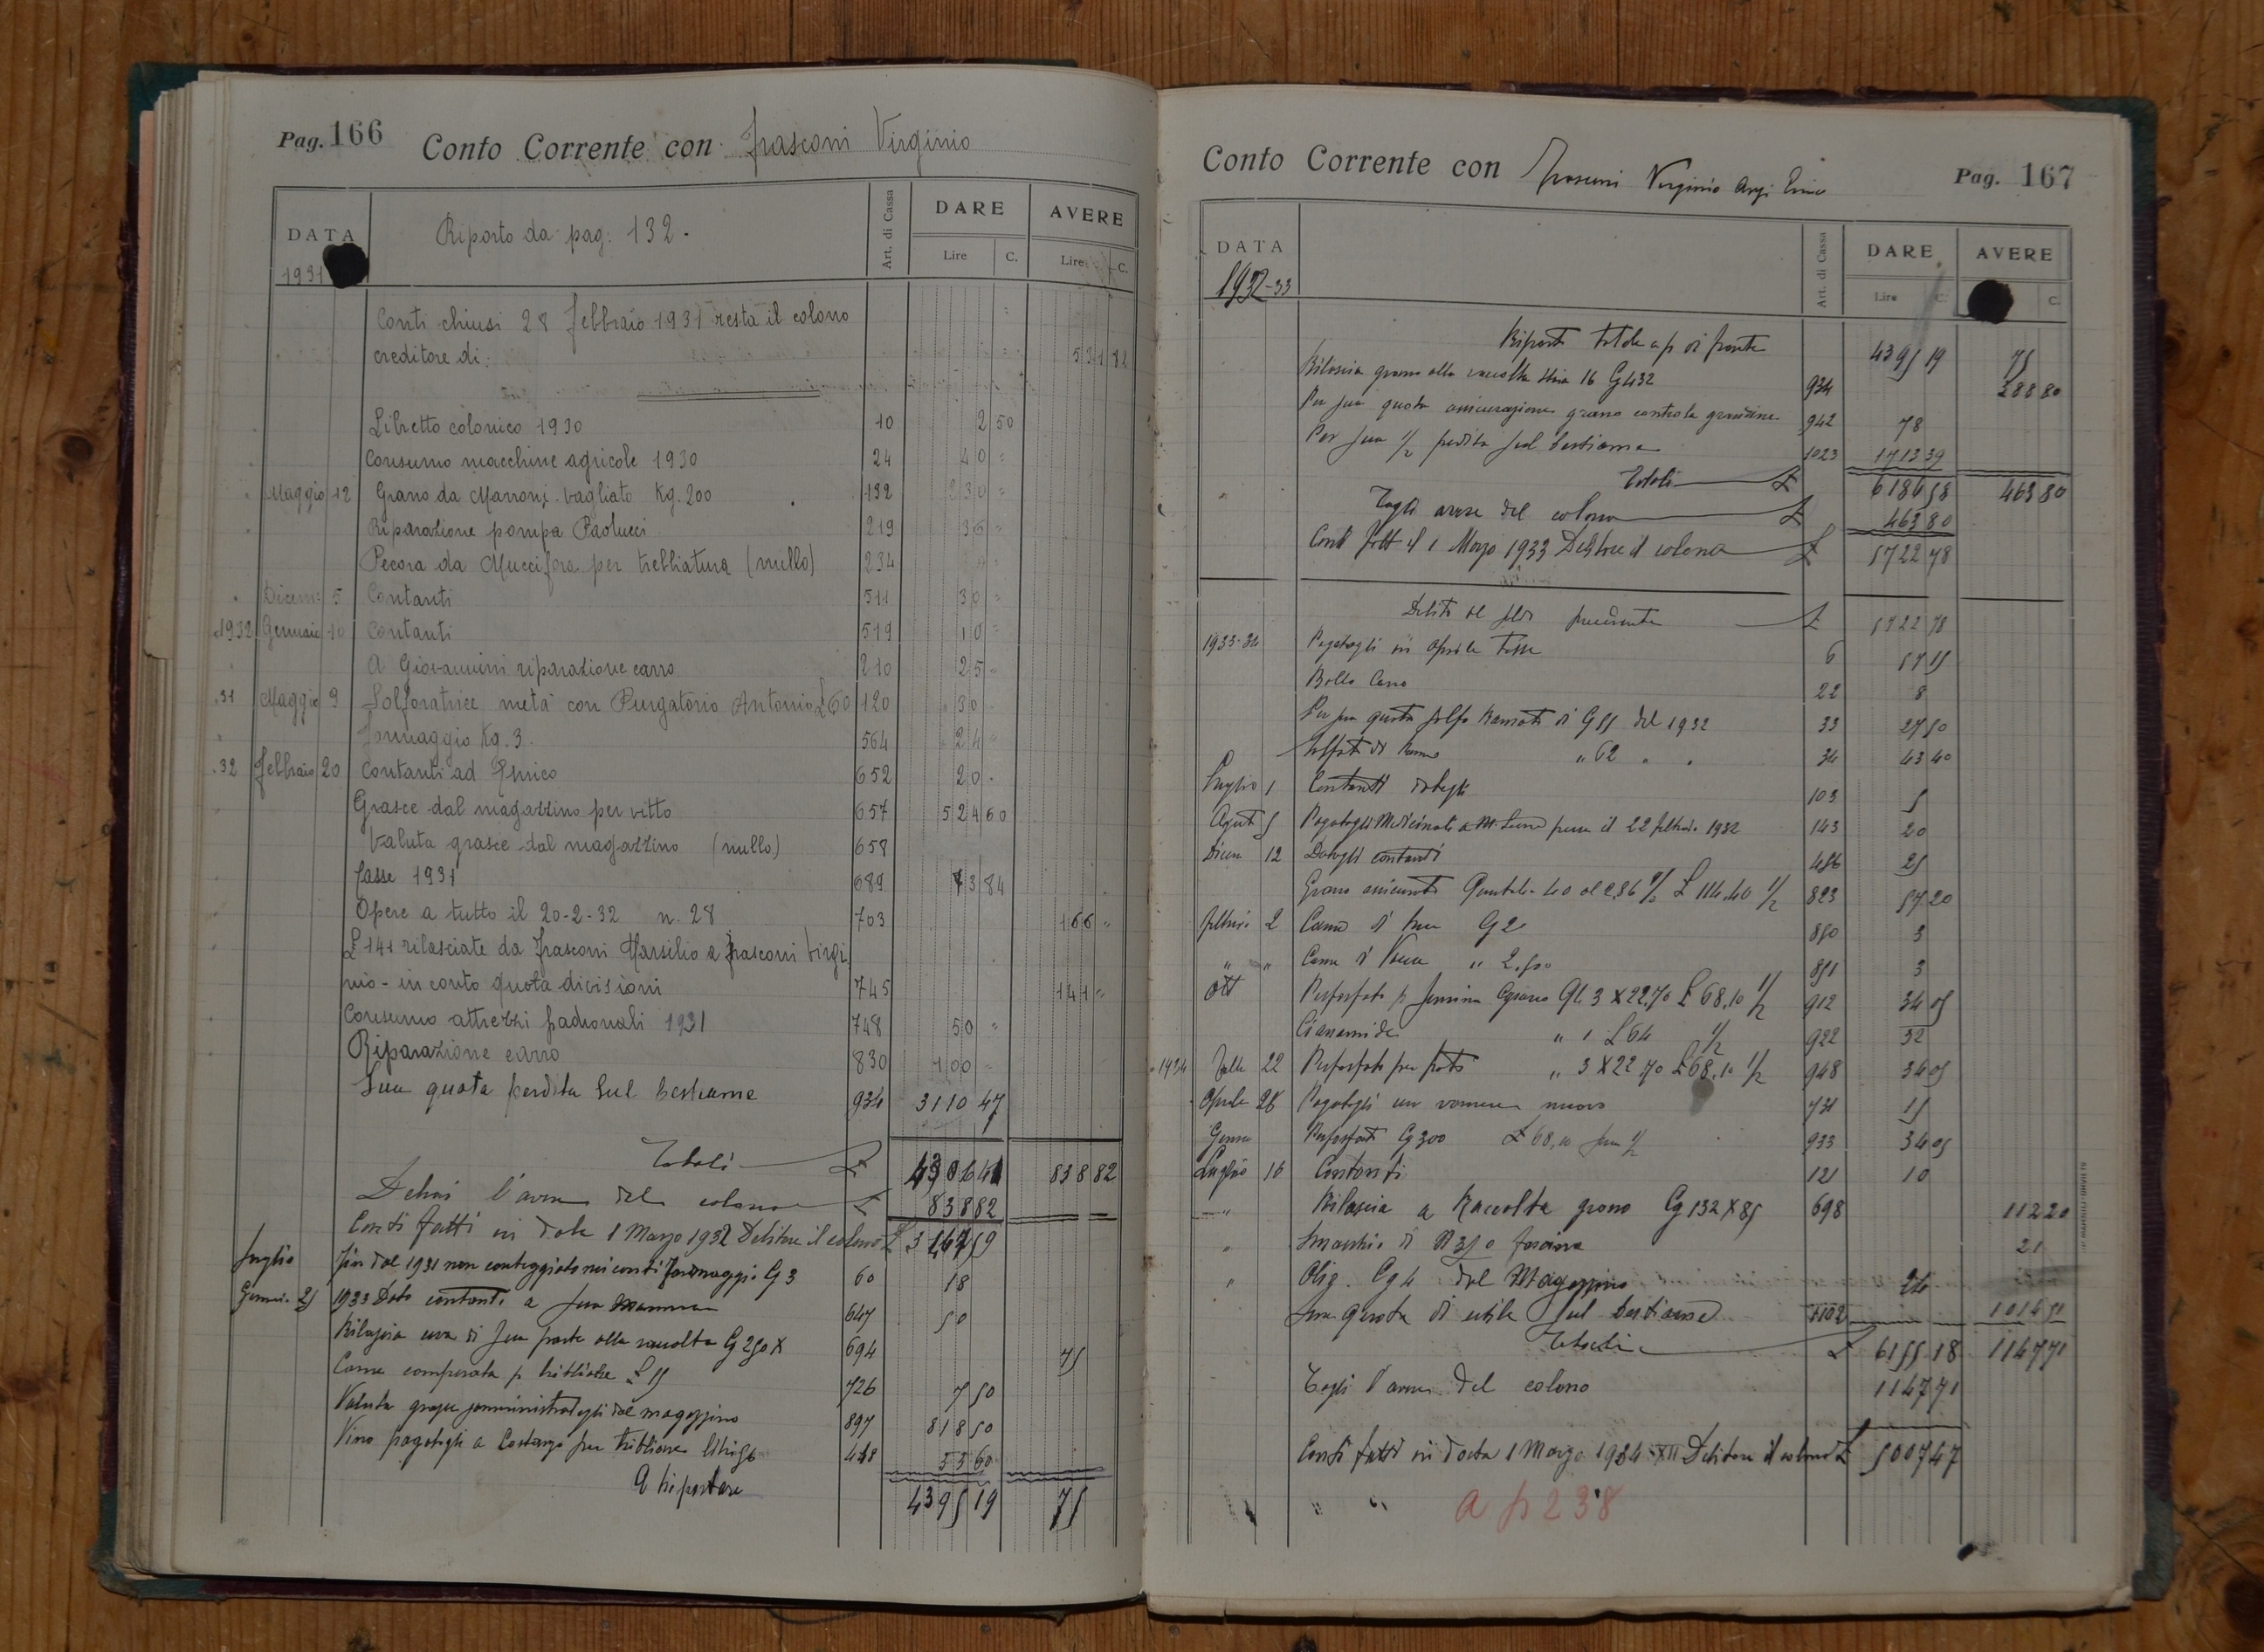 Pag. 166 Conto Corrente con Frasconi Virginio
DATA
1931
Riporto da pag. 132.
Art. di Cassa
DARE
AVERE
Lire C.
Lire C.
Conti chiusi 28 febbraio 1931 resta il colono
creditore di: 531 82
Libretto colonico 1930 10 2 50
Consumo macchine agricole 1930 24 40 =
Maggio 12 Grano da Marroni vagliato Kg. 200 192 230 =
Riparazione pompa Paolucci 219 36 =
Pecora da Muccifora per trebbiatura (nullo) 234
Dicem: 5 Contanti 511 30 =
1932 Gennaio 10 Contanti 519 10 =
A Giovannini riparazione carro 210 25
.31 Maggio 9 Solforatrice metà con Purgatorio Antonio £ 60 120 30
Formaggio Kg. 3. 564 24 =
.32 Febbraio 20 Contanti ad Enrico 652 20 .
Grasce dal magazzino per vitto 657 524 60
Valuta grasce dal magazzino (nullo) 658
Tasse 1931 689 73 84
Opere a tutto il 20-2-32 n. 28 703 166 "
£ 141 rilasciate da Frasconi Marsilio a Frasconi Virgi
nio - in conto quota divisioni 745 141 "
Consumo attrezzi padronali 1931 748 50 =
Riparazione carro 830 100 =
Sua quota perdita sul bestiame 934 3110 47
Totali £ 4306 41 838 82
l'avere del colono £ 838 82
Conti fatti in data 1 Marzo 1932 Debitore il colono £ 3467 59
Luglio Fin dal 1931 non conteggiato nei conti Formaggio Cg 3 60 18
Genn. 25 1933 Dato contanti a sua mamma 647 50
Rilascia uva di sua parte alla raccolta Cg 250 X 694 75
Carne comperata p. trebbiare £ 15 726 7 50
Valuta grasce somministrategli dal magazzino 897 818 50
Vino pagatogli a Costanzo per trebbiare 448 33 60
A riportare 4395 19 75
Conto Corrente con Frasconi Virginio Pag. 167
DATA
1932-33
Art. di Cassa
DARE
AVERE
Lire C.
C.
Riporto totale a p. di fronte 4395 19 75
Rilascia grano alla raccolta 16 Cg 432 934 388 80
Per sua quota assicurazione grano contro la grandine 942 78
Per sua 1/2 perdita sul bestiame 1023 1713 39
" Totali £ 6186 58 463 80
Togli avere del colono £ 463 80
Conti fatti il 1 Marzo 1933 Debitore il colono £ 5722 78
Debito al saldo precedente £ 5722 78
1933-34 Pagatogli in Aprile Tasse 6 57 15
Bollo Carro 22 8
Per sua quota solfo ramato di Cg 55 del 1932 33 27 50
Solfato di Rame " 62 " " 34 43 40
Luglio 1 Contanti datogli 103 5
Agost 5 Pagatogli Medicinali a 22 febbraio 1932 143 20
Dicem 12 Datogli contanti 486 25
Grano assicurato Quintali 40 al 2,86 % £ 114.40 1/2 823 57 20
Febbraio 2 Carne di Cg 2 850 3
" " Carne di Vacca " 2.500 851 3
Ott Perfosfato p. semina Grano Ql. 3 X 22,70 £ 68,10 1/2 912 34 05
Cianamide " 1 £ 64 1/2 922 32
1934 22 Perfosfato per prato " 3 X 22,70 £ 68,10 1/2 948 34 05
Aprile 28 Pagatogli un vomere nuovo 731 15
Genna Perfosfato Cg 300 £ 68,10 sua 1/2 933 34 05
Luglio 16 Contanti 121 10
" Rilascia a Raccolta grano Cg 132 X 85 698 112 20
" di 21
" Olio Cg 4 dal Magazzino 24
Sua quota di utile sul bestiame 1102 1014 51
Totali £ 6155 18 1147 71
Togli l'avere del colono 1147 71
Conti fatti in data 1 Marzo 1934 XII Debitore il colono £ 5007 47
" " a p 238